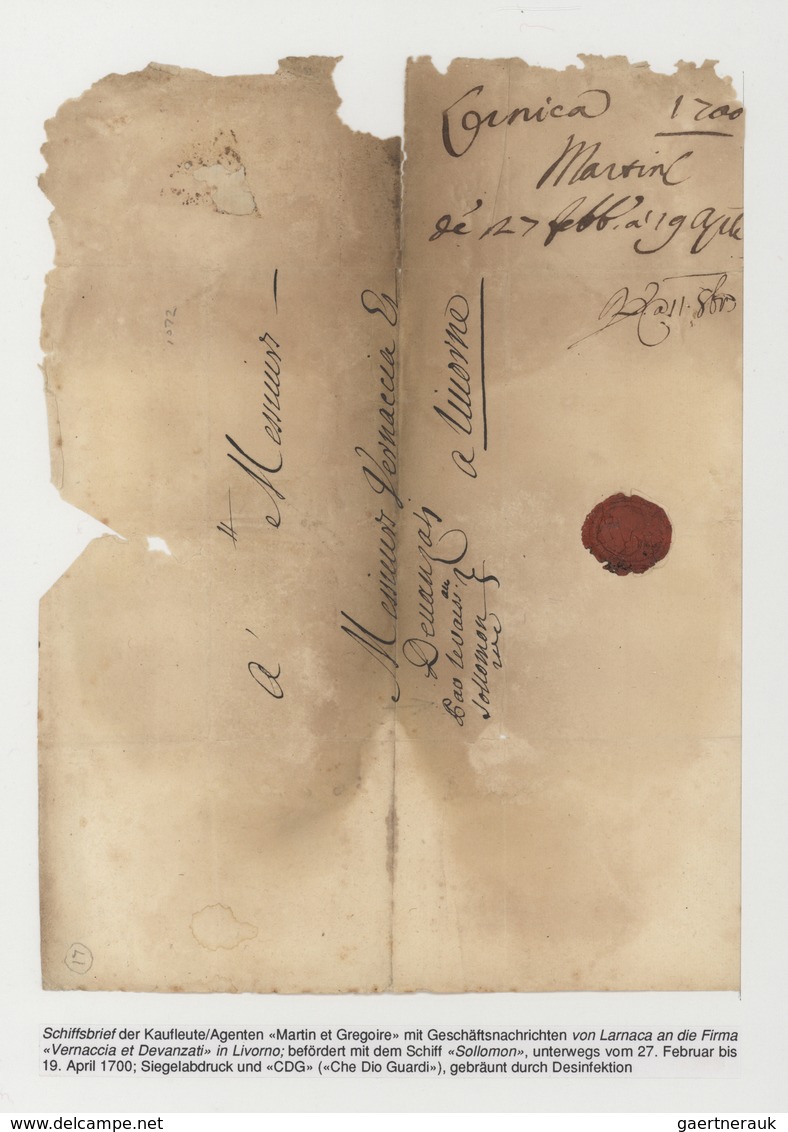 Larnica 1700
Martin
de 27 febb. a 19 Aple
1072
A Messieurs
Messieurs Vernaccia Et
Deuanzati
a Liuorne
Sollomon
17
Schiffsbrief der Kaufleute/Agenten «Martin et Gregoire» mit Geschäftsnachrichten von Larnaca an die Firma
«Vernaccia et Devanzati» in Livorno; befördert mit dem Schiff «Sollomon», unterwegs vom 27. Februar bis
19. April 1700; Siegelabdruck und «CDG» («Che Dio Guardi»), gebräunt durch Desinfektion
gaertnerauk